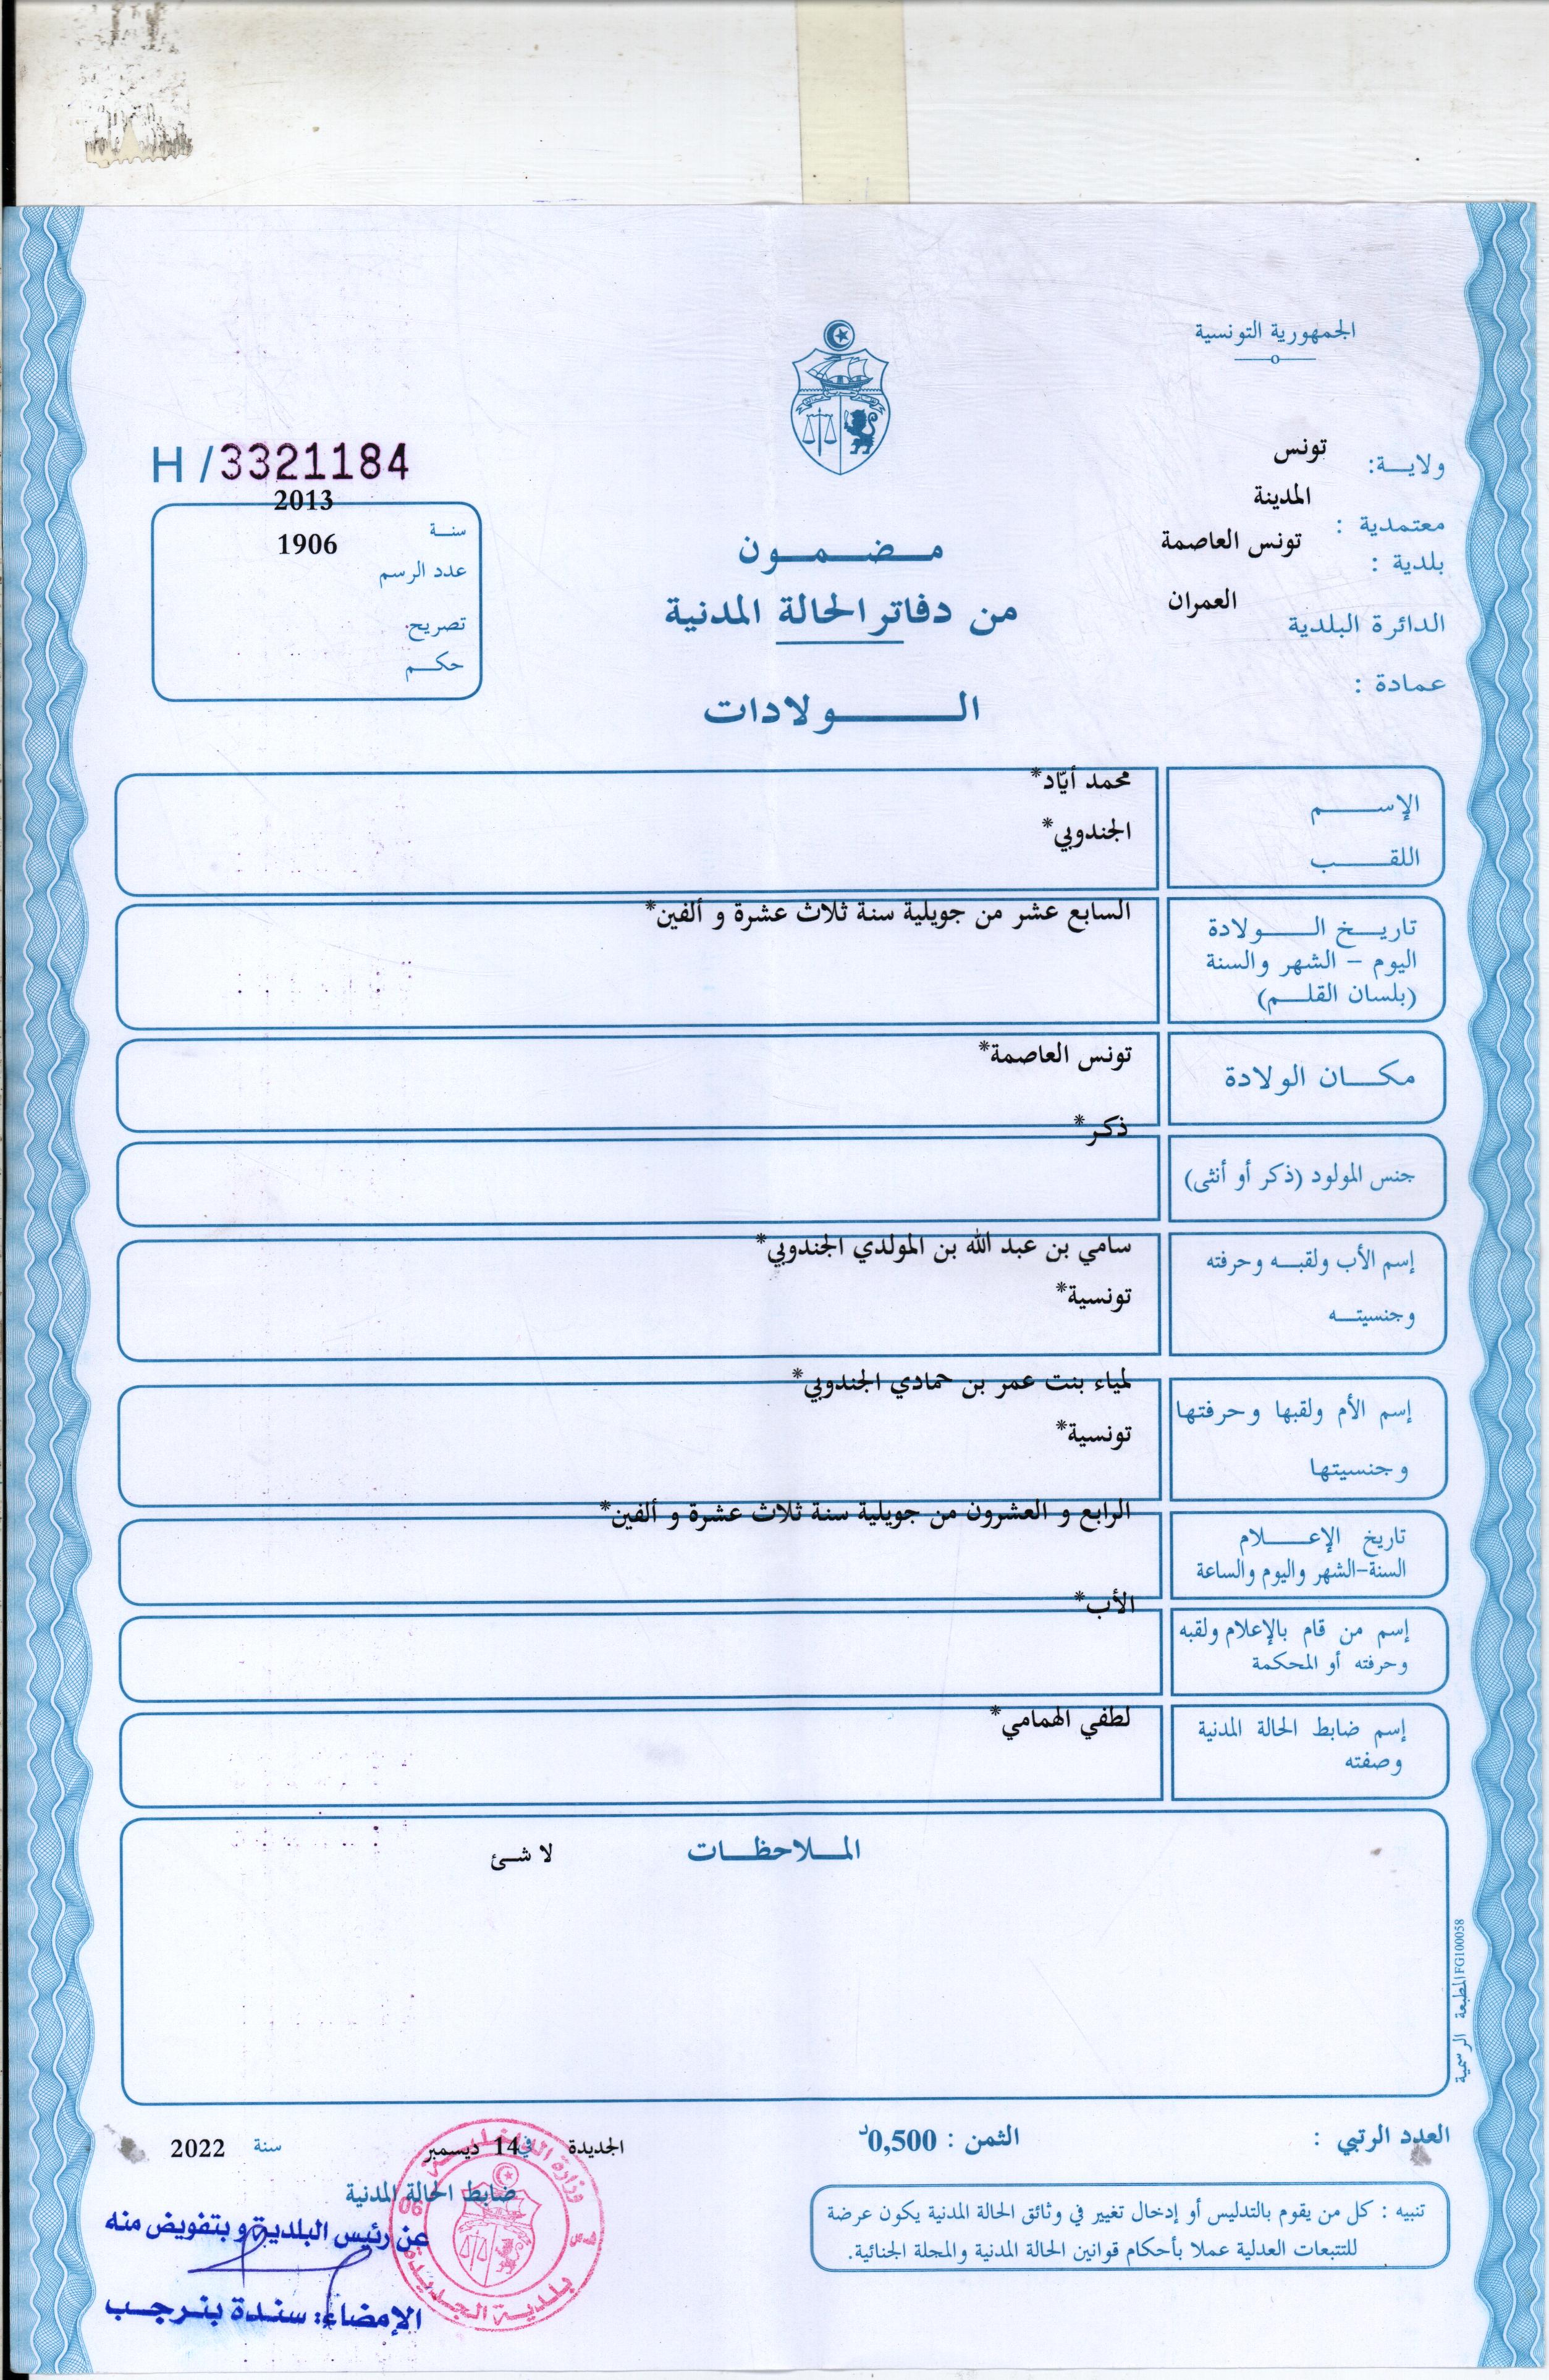 الجمهورية التونسية
ولايـــة: تونس
معتمدية : المدينة
بلدية : تونس العاصمة
الدائرة البلدية العمران
عمادة :
H/3321184
سنــة 2013
عدد الرسم 1906
تصريح
حكـــم
مـــضـــمـــون
من دفاتر الحالة المدنية
الــــــولادات
الإســـــم محمد أيّاد*
اللقـــــب الجندوبي*
تاريـــخ الـــــولادة السابع عشر من جويلية سنة ثلاث عشرة و ألفين*
اليوم – الشهر والسنة
(بلسان القلـــم)
مكـــان الولادة تونس العاصمة*
جنس المولود (ذكر أو أنثى) ذكر*
إسم الأب ولقبـــه وحرفته سامي بن عبد الله بن المولدي الجندوبي*
وجنسيتـــه تونسية*
إسم الأم ولقبها وحرفتها لمياء بنت عمر بن حمادي الجندوبي*
وجنسيتها تونسية*
تاريخ الإعـــــلام الرابع و العشرون من جويلية سنة ثلاث عشرة و ألفين*
السنة-الشهر واليوم والساعة
إسم من قام بالإعلام ولقبه الأب*
وحرفته أو المحكمة
إسم ضابط الحالة المدنية لطفي الهمامي*
وصفته
المـــلاحظـــات لا شئ
المطبعة الرسمية FG100058
العدد الرتبي :
الثمن : 0,500د
الجديدة في 14 ديسمبر سنة 2022
ضابط الحالة المدنية
عن رئيس البلدية و بتفويض منه
الإمضاء: سندة بنرجب
وزارة الداخلية
06
بلدية الجديدة
تنبيه : كل من يقوم بالتدليس أو إدخال تغيير في وثائق الحالة المدنية يكون عرضة
للتتبعات العدلية عملا بأحكام قوانين الحالة المدنية والمجلة الجنائية.